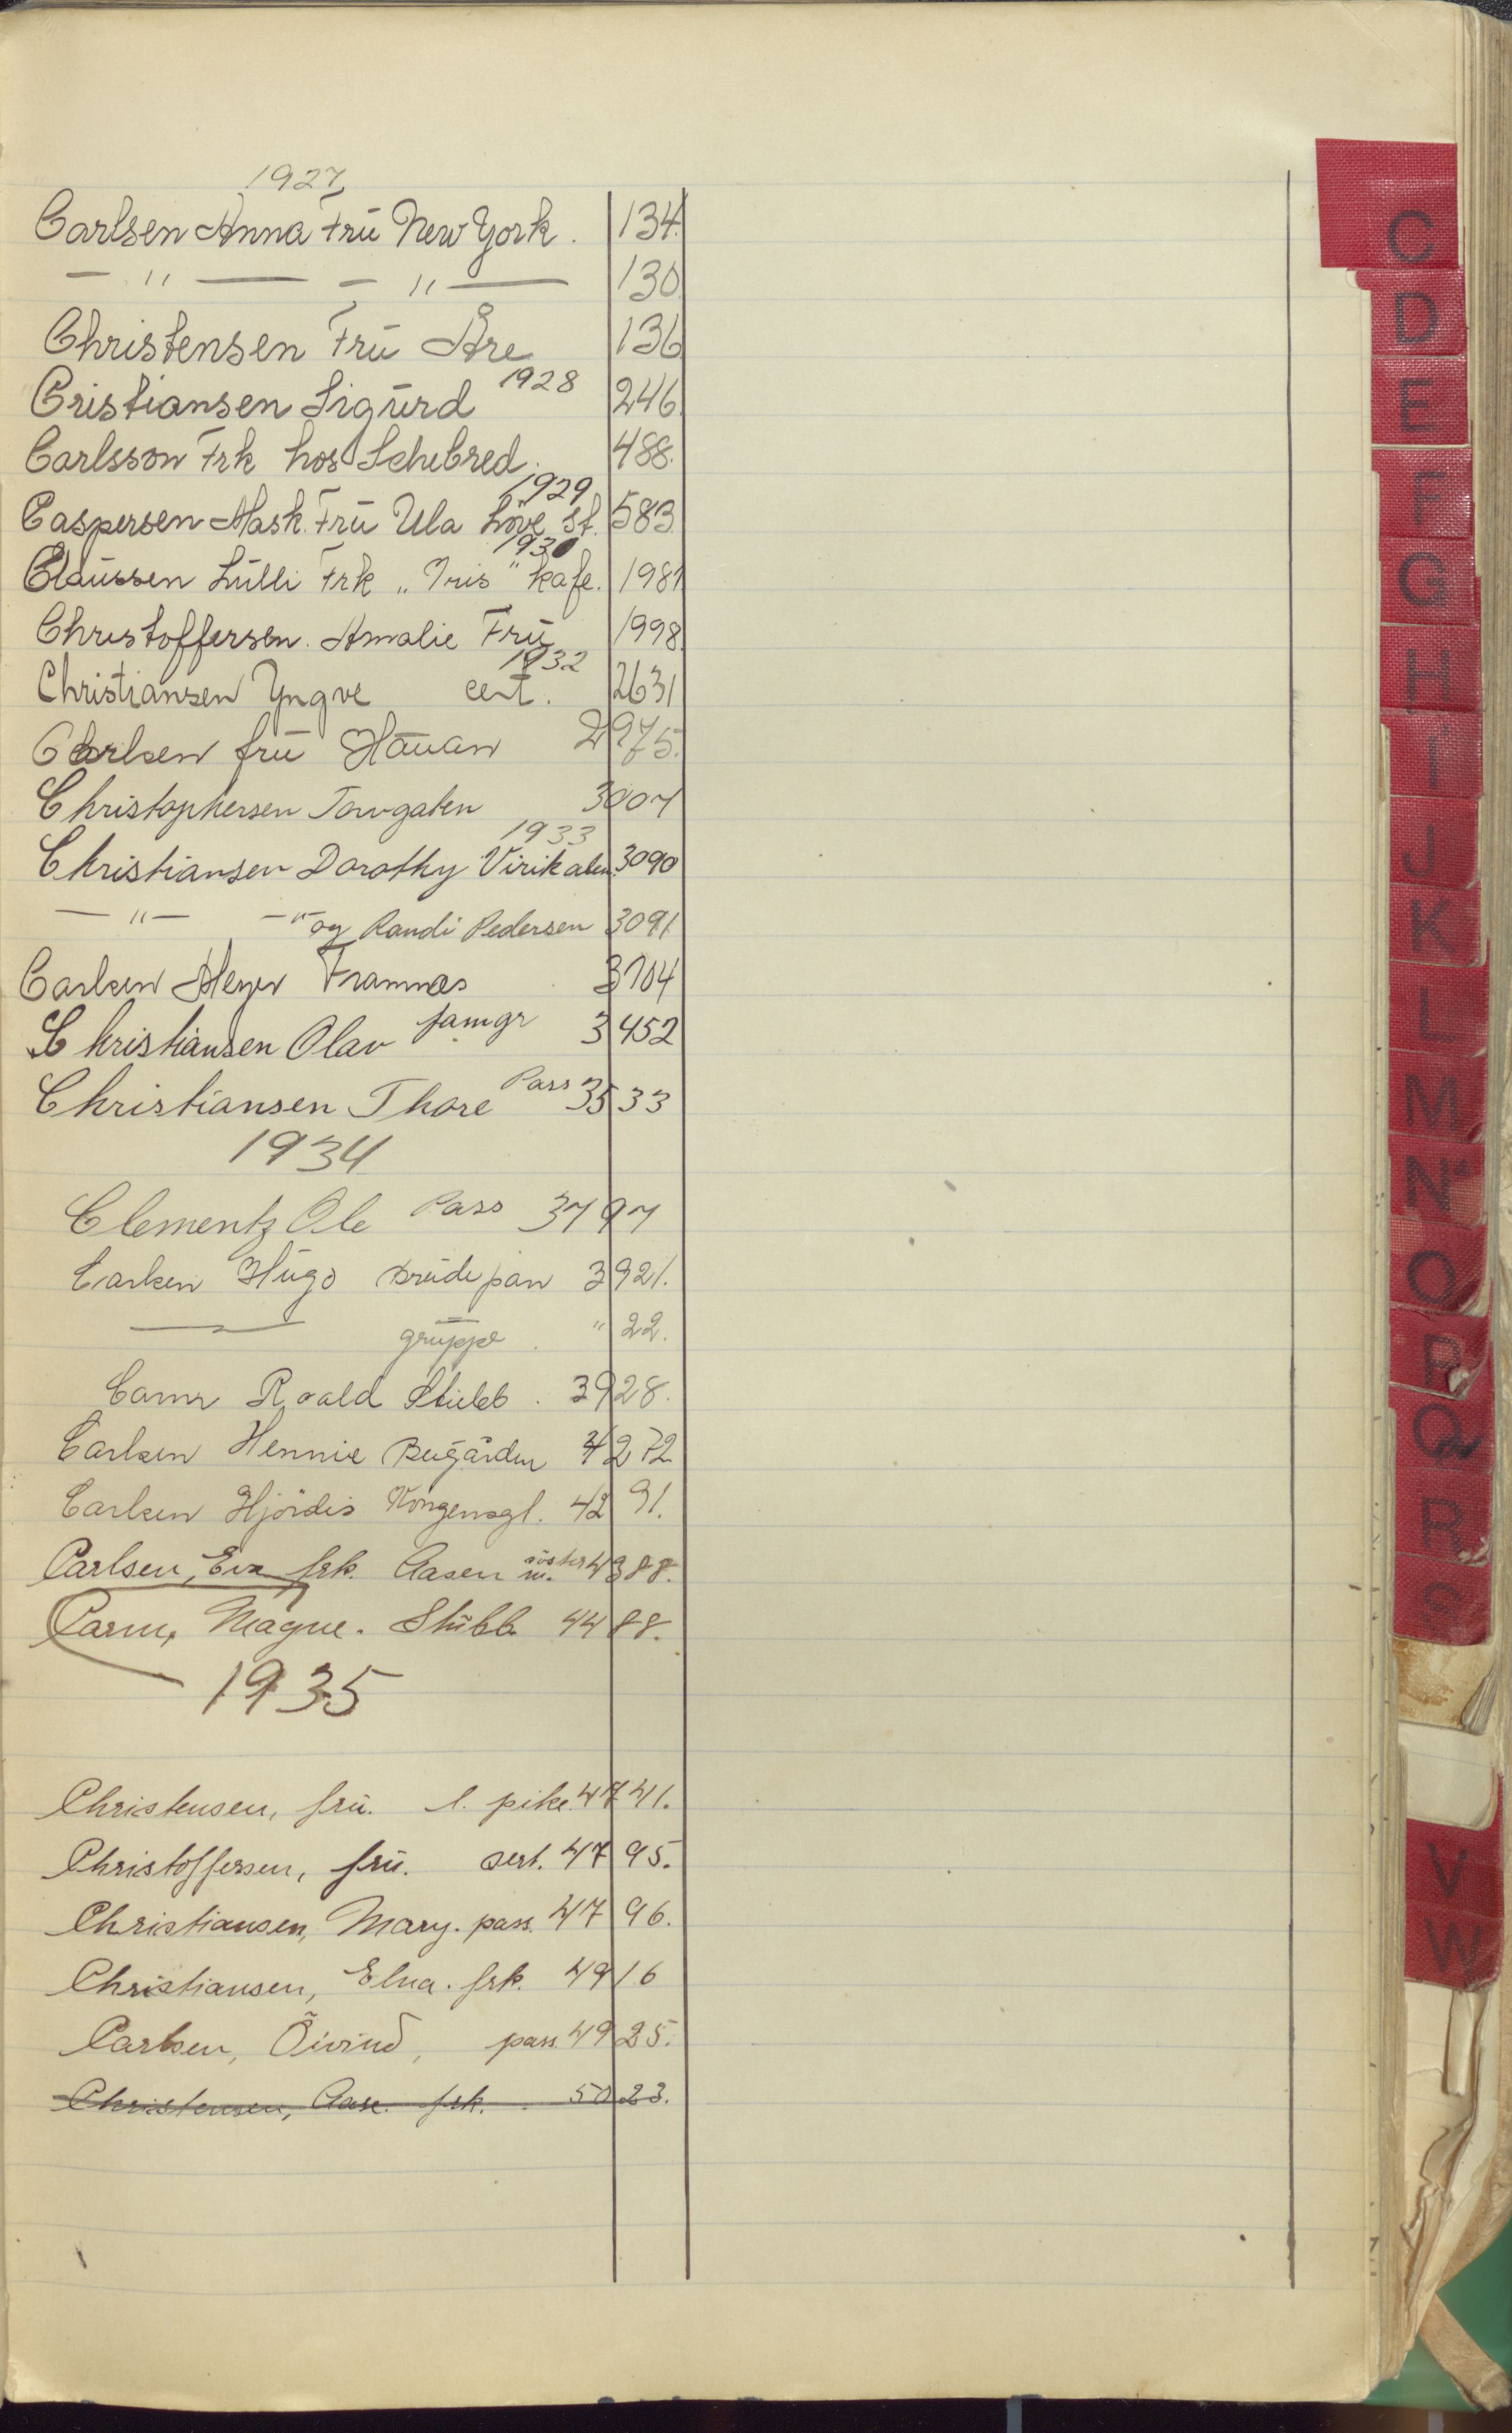 1927
Carlsen Anna Frü New York. 134.
— " — — " — 130
Christensen Frü Åre 136
1928
Cristiansen Sigürd 246.
Carlsson Frk hos Schibred. 488.
1929
Caspersen Mask. Frü Ula Löve st. 583
1930
Claüssen Lülli Frk „Iris" kafe. 1981
Christoffersen. Amalie Frü 1998.
1932
Christiansen Yngve cert. 2631
Carlsen frü Haüan 2975.
Christophersen Torvgaten 3007
1933
Christiansen Dorothy Virikalen. 3090
— " — — " — og Randi Pedersen 3091
Carlsen Meyer Framnæs 3104
Christiansen Olav famgr 3452
Christiansen Thore Pass 3533
1934
Clementz Ole Pass 3797
Carlsen Hügo brüdepar 3921.
— grüppe. " 22.
Carm Roald Stübb. 3928.
Carlsen Hennie Bügården 4272
Carlsen Hjördis Kongensgt. 4291.
Carlsen, Eva frk. Aasen m. söster 4388.
Carm, Magne. Stübb. 4488.
1935
Christensen, frü. l. pike. 4741.
Christoffersen, frü. sert. 4795.
Christiansen, Mary. pass. 4796.
Christiansen, Elna. frk. 4916
Carlsen, Öivind, pass. 4925.
Christensen, Aase. frk. 5023.
C
D
E
F
G
H
I
J
K
L
M
N
O
P
Q
R
S
V
W